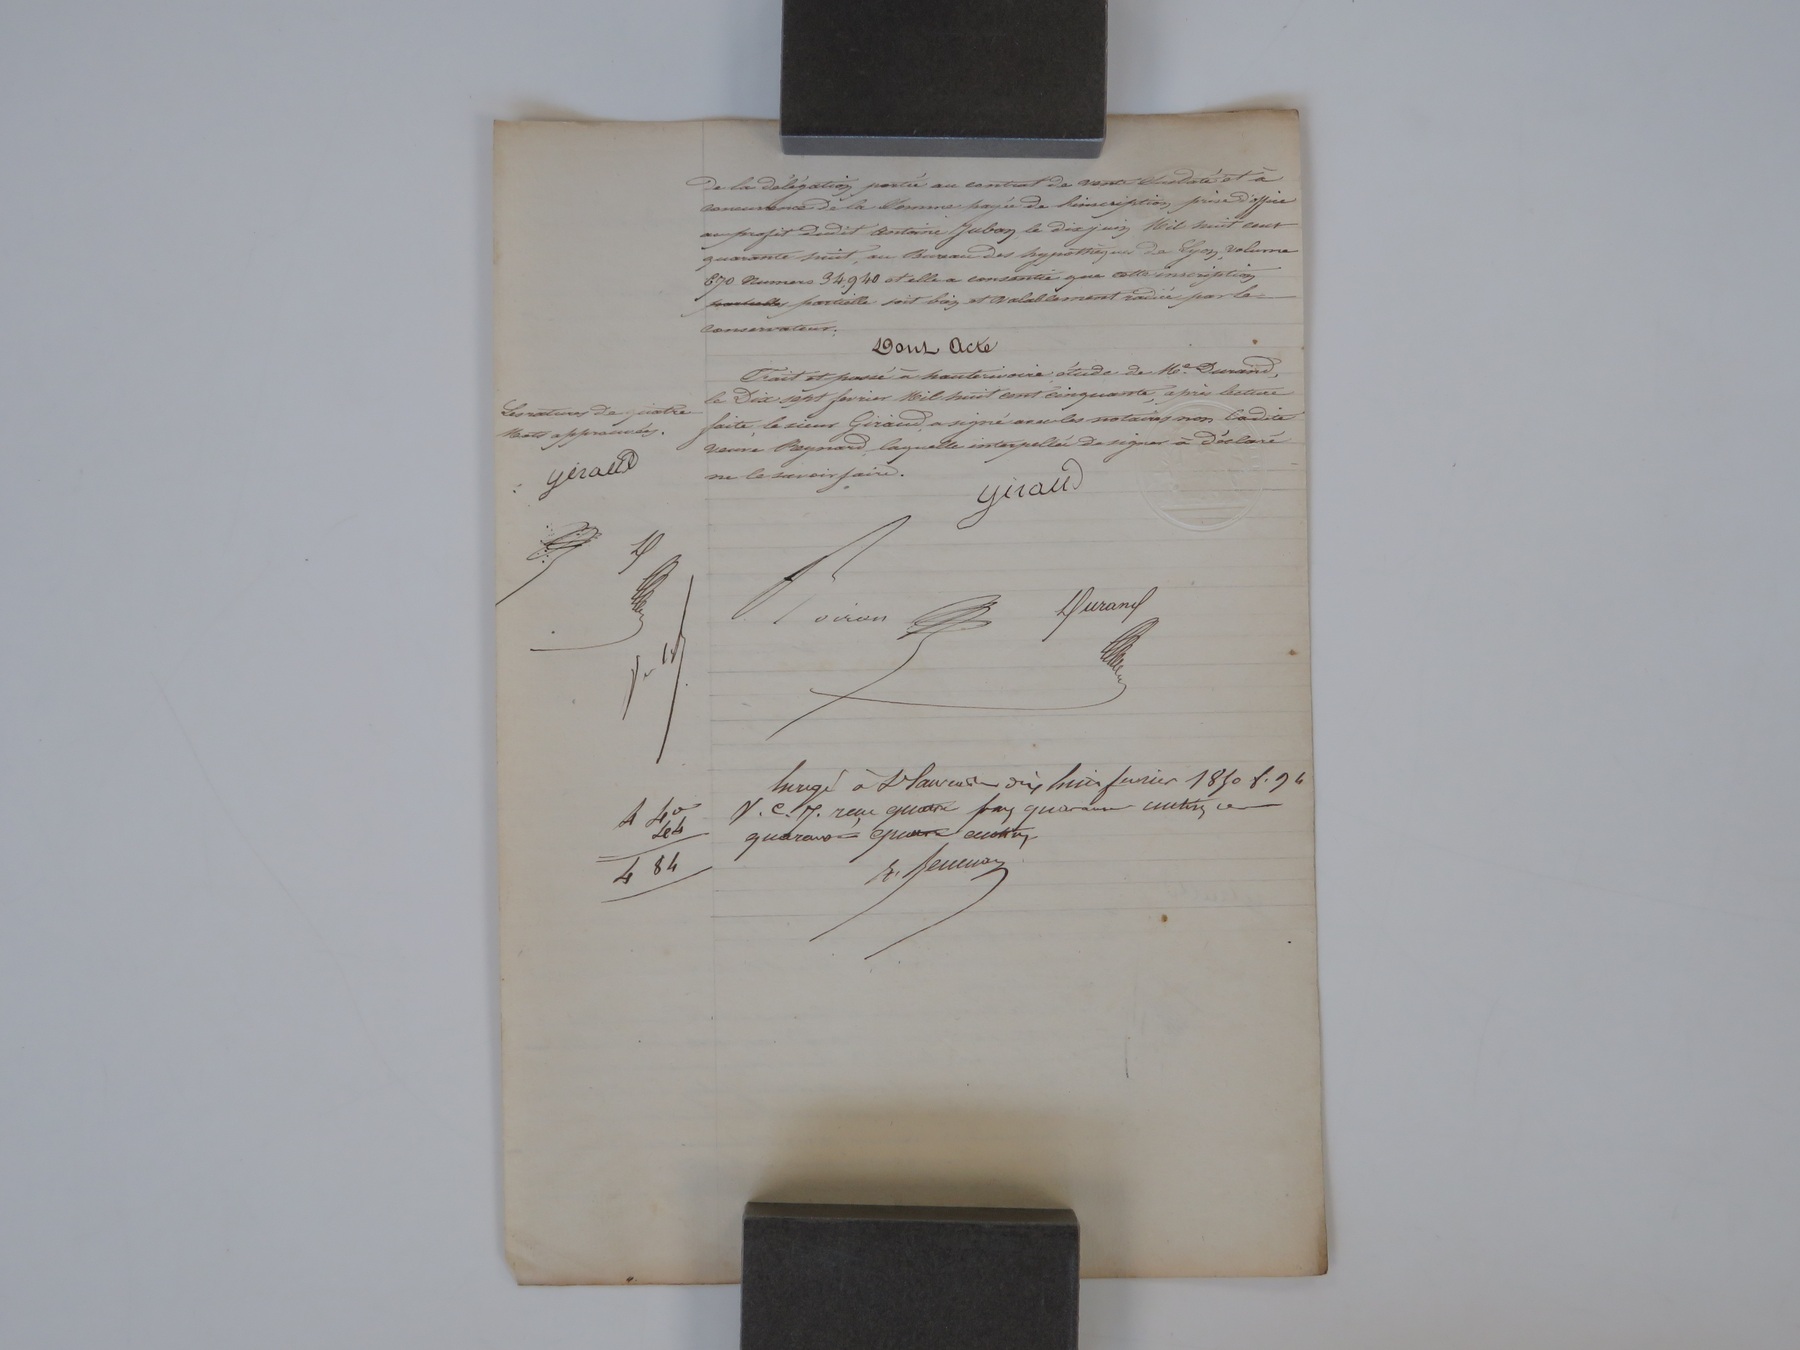 de la délégation portée au contrat de vente susdaté et à
concurrence de la Somme payée de l'inscription prise d'office
au profit dudit Antoine Jubon le dix juin Mil huit cent
quarante huit, au Bureau des hypothèques de Lyon, volume
670 Numero 34,940 et elle a consentie que cette inscription
partielle partielle soit bien et valablement radiée par le
conservateur.
Dont Acte
Fait et passé à hauterivoire étude de Me. Durand,
le Dix sept fevrier Mil huit cent cinquante, après lecture
faite le sieur Giraud a signé avec les notaires non ladite
veuve Reynard laquelle interpellée de signer à déclaré
ne le savoir faire.
Les ratures de quatre
Mots approuvées.
giraud
giraud
D
Voiron
Durand
Enregé à St Laurent dix huit fevrier 1850 f. 94
V. C. 7. reçu quatre francs quarante centimes
quarante quatre centimes
4 40
44
4 84